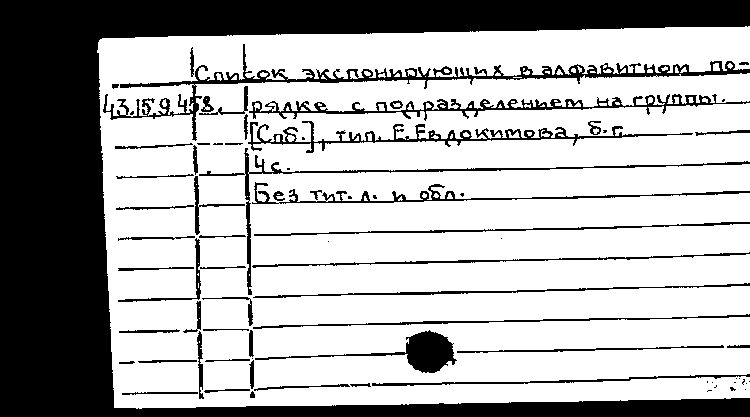 Список экспонирующих в алфавитном по-
43.15.9.458. рядке с подразделением на группы.
[Спб.], тип. Е. Евдокимова, б.г.
4 с.
Без тит. л. и обл.